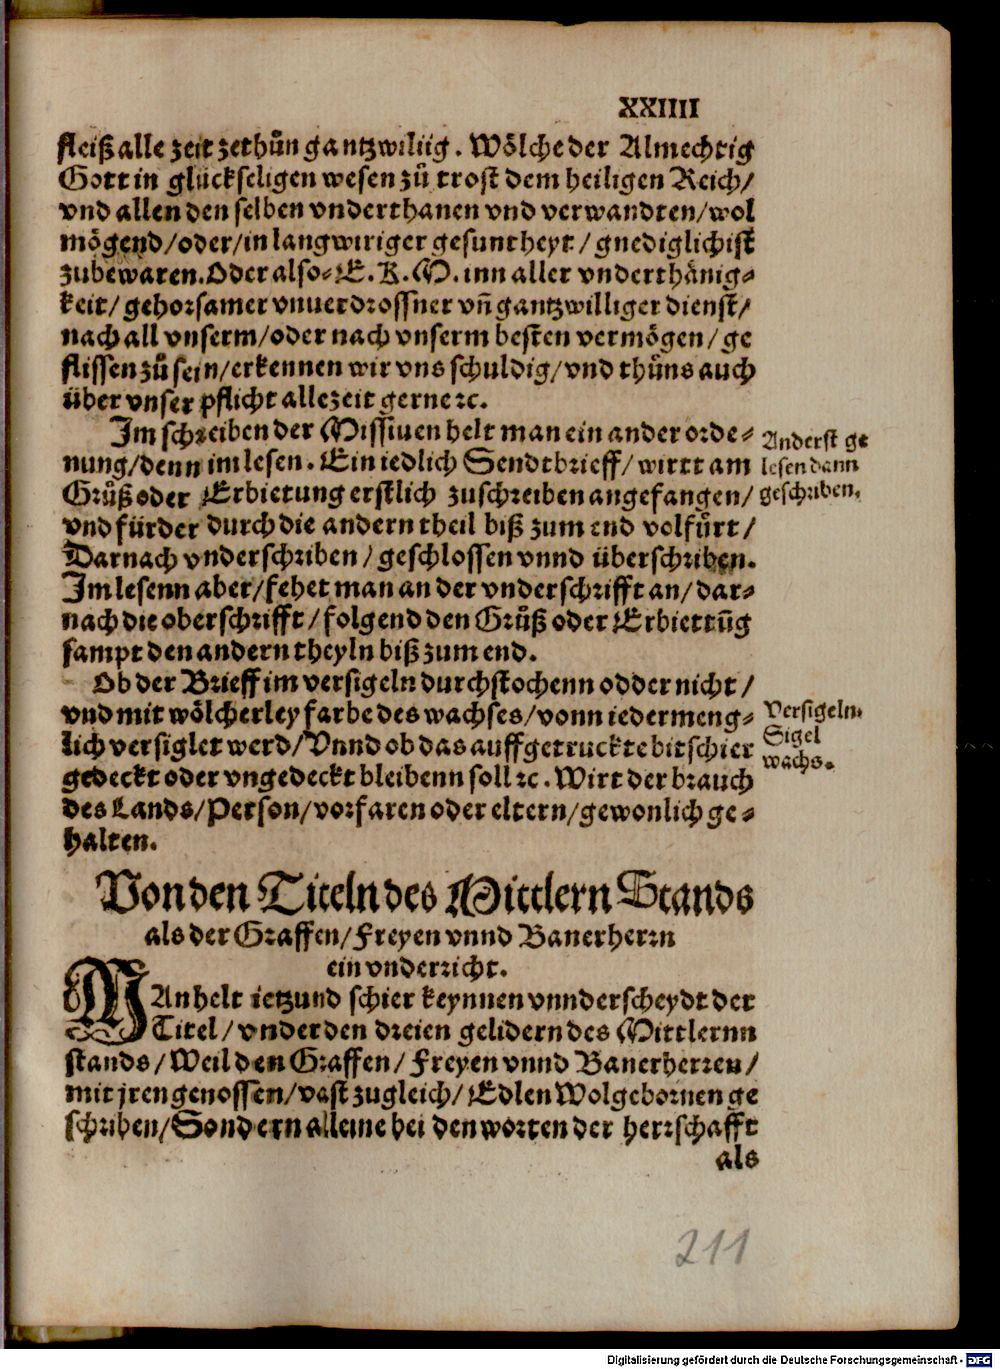 XXIIII
fleiß alle zeit zethůn gantzwiliig. Wölche der Almechtig
Gott in glückseligen wesen zů trost dem heiligen Reich/
vnd allen den selben vnderthanen vnd verwandten/wol
mögend/oder/in langwiriger gesuntheyt/gnediglich ist
zubewaren. Oder also⸗ E. K. M. inn aller vnderthänig⸗
keit/gehorsamer vnuerdrossner vñ gantzwilliger dienst/
nach all vnserm/oder nach vnserm besten vermögen/ge
flissen zů sein/erkennen wir vns schuldig/vnd thůns auch
über vnser pflicht allezeit gerne ꝛc.
Im schreiben der Missiuen helt man ein ander orde⸗
nung/denn im lesen. Ein iedlich Sendtbrieff/wirtt am
Grůß oder Erbietung erstlich zuschreiben angefangen/
vnd fürder durch die andern theil biß zum end volfůrt/
Darnach vnderschriben/geschlossen vnnd überschriben.
Im lesenn aber/fehet man an der vnderschrifft an/dar⸗
nach die oberschrifft/folgend den Grůß oder Erbiettũg
sampt den andern theyln biß zum end.
Anderst ge
lesen dann
geschriben.
Ob der Brieff im versigeln durchstochenn odder nicht/
vnd mit wölcherley farbe des wachses/vonn iedermeng⸗
lich versiglet werd/Vnnd ob das auffgetruckte bitschier
gedeckt oder vngedeckt bleibenn soll ꝛc. Wirt der brauch
des Lands/Person/vorfaren oder eltern/gewonlich ge⸗
halten.
Versigeln.
Sigel
wachs.
Von den Titeln des Mittlern Stands
als der Graffen/Freyen vnnd Banerherrn
ein vnderricht.
MAn helt ietzund schier keynnen vnnderscheydt der
Titel/vnder den dreien gelidern des Mittlernn
stands/Weil den Graffen/Freyen vnnd Banerherren/
mit jren genossen/vast zugleich/Edlen Wolgebornen ge
schriben/Sondern alleine bei den worten der herrschafft
als
211
Digitalisierung gefördert durch die Deutsche Forschungsgemeinschaft - DFG